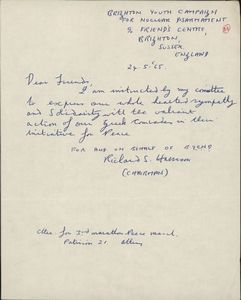 BRIGHTON YOUTH CAMPAIGN
FOR NUCLEAR DSARMAMENT
% FRIENDS CENTRE,
BRIGHTON,
SUSSEX,
ENGLAND
24.5.'65.
Dear Friends,
I am instructed by my committee
to express our whole hearted sympathy
and Solidarity with the valiant
action of our Greek Comrades in their
initiative for Peace
FOR AND ON BEHALF OF BYCND
Richard S.
(CHAIRMAN)
for 3rd marathon Peace march.
Patission 21. Athens